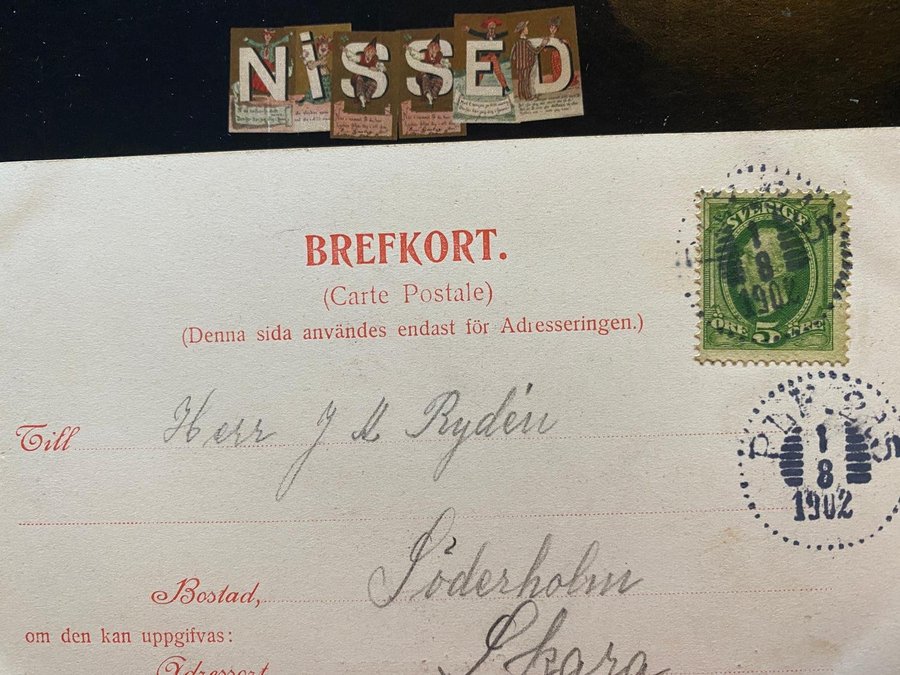 NiSSED
BREFKORT.
(Carte Postale)
(Denna sida användes endast för Adresseringen.)
SVERIGE
1
8
1902
ÖRE 5 ÖRE
Till Herr J A Rydén
1
8
1902
Söderholm
Bostad,
Skara
om den kan uppgifvas:
Adressort